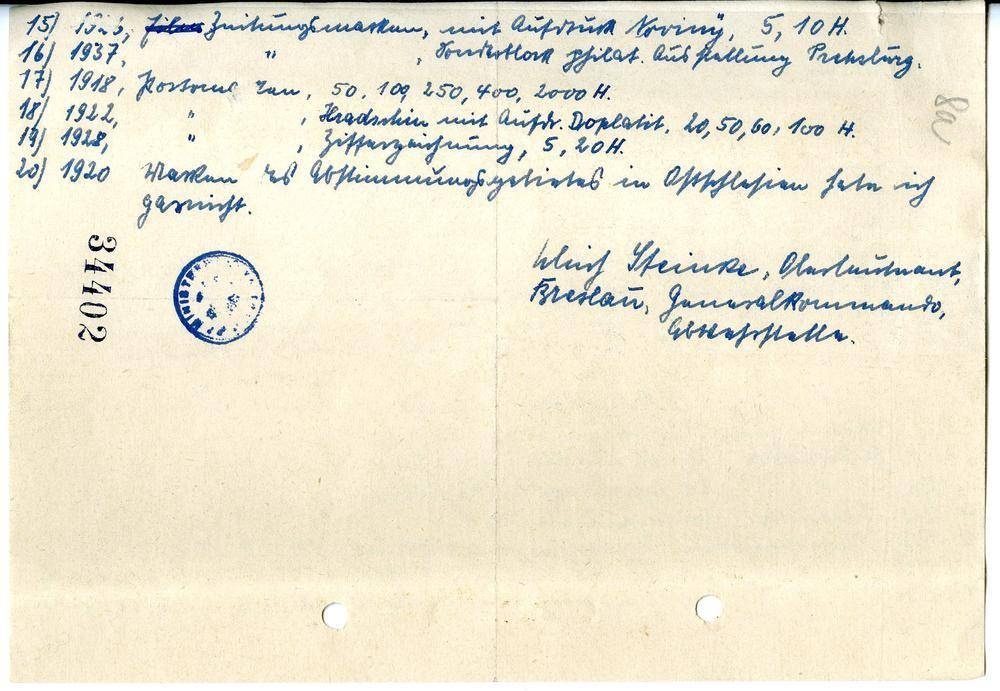 15) 1926, Zeitungsmarken, mit Aufdruck Noviny, 5, 10 H.
16) 1937, " , Sonderblock philat. Ausstellung Pressburg.
17) 1918, 50, 100, 250, 400, 2000 H.
18) 1922, " , Hradschin mit Aufdr. Doplatit. 20, 50, 60, 100 H.
19) 1928, " , Ziffernzeichnung, 5, 20 H.
20) 1920 Marken des Abstimmungsgebietes in Ostschlesien habe ich
garnicht.
8a
34402
MINISTER
Ulrich Steinke, Oberleutnant,
Breslau, Generalkommando,
Abwehrstelle.